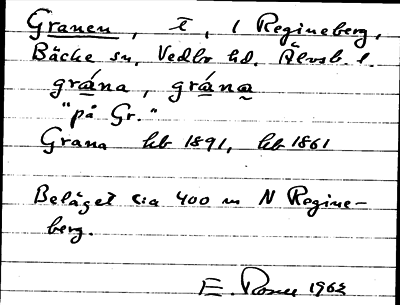 Granen, t, l Regineberg,
Bäcke sn, Vedbo hd. Älvsb. l.
grána, grána
"på Gr."
Grana hb 1891, hb 1861
Beläget c:a 400 m N Regine-
berg.
E. Rosen 1962